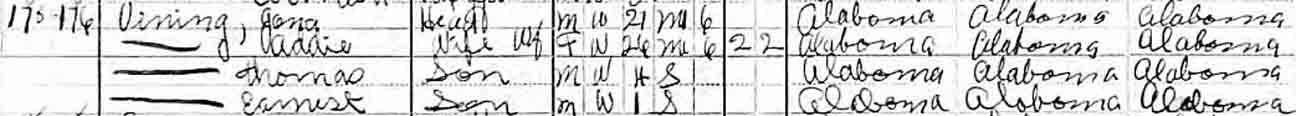 175 176 Vining, Jona Head M W 21 M 6 Alabama Alabama Alabama
Addie Wife F W 26 M 6 2 2 Alabama Alabama Alabama
Thomas Son M W 4 S Alabama Alabama Alabama
Earnest Son M W 1 S Alabama Alabama Alabama